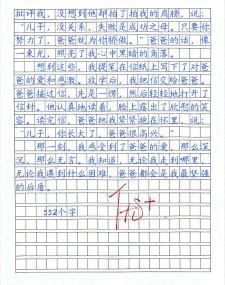 批评我,没想到他却拍了拍我的肩膀,说:
“儿子,没关系,失败是成功之母。只要你
努力了,爸爸就为你骄傲。”爸爸的话,像
一束光,照亮了我心中黑暗的角落。
想到这些,我提笔在信纸上写下了对爸
爸的爱和感激。放学后,我把信交给爸爸。
爸爸接过信,先是一愣,然后轻轻地打开了
信封。他认真地读着,脸上露出了欣慰的笑
容。读完信,爸爸把我紧紧地在怀里,说:
“儿子,你长大了,爸爸很高兴。”
那一刻,我感受到了爸爸的爱,那么深
沉,那么无言。我知道,无论我走到哪里,
无论我遇到什么困难,爸爸都会是我最坚强
的后盾。
552个字